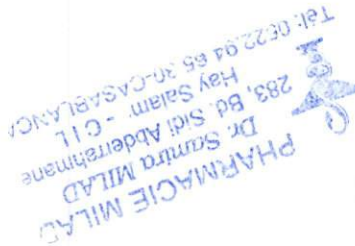 PHARMACIE MILAD
Dr. Samira MILAD
283, Bd. Sidi Abderrahmane
Hay Salam - C I L
Tél: 0522.94 65 30-CASABLANCA